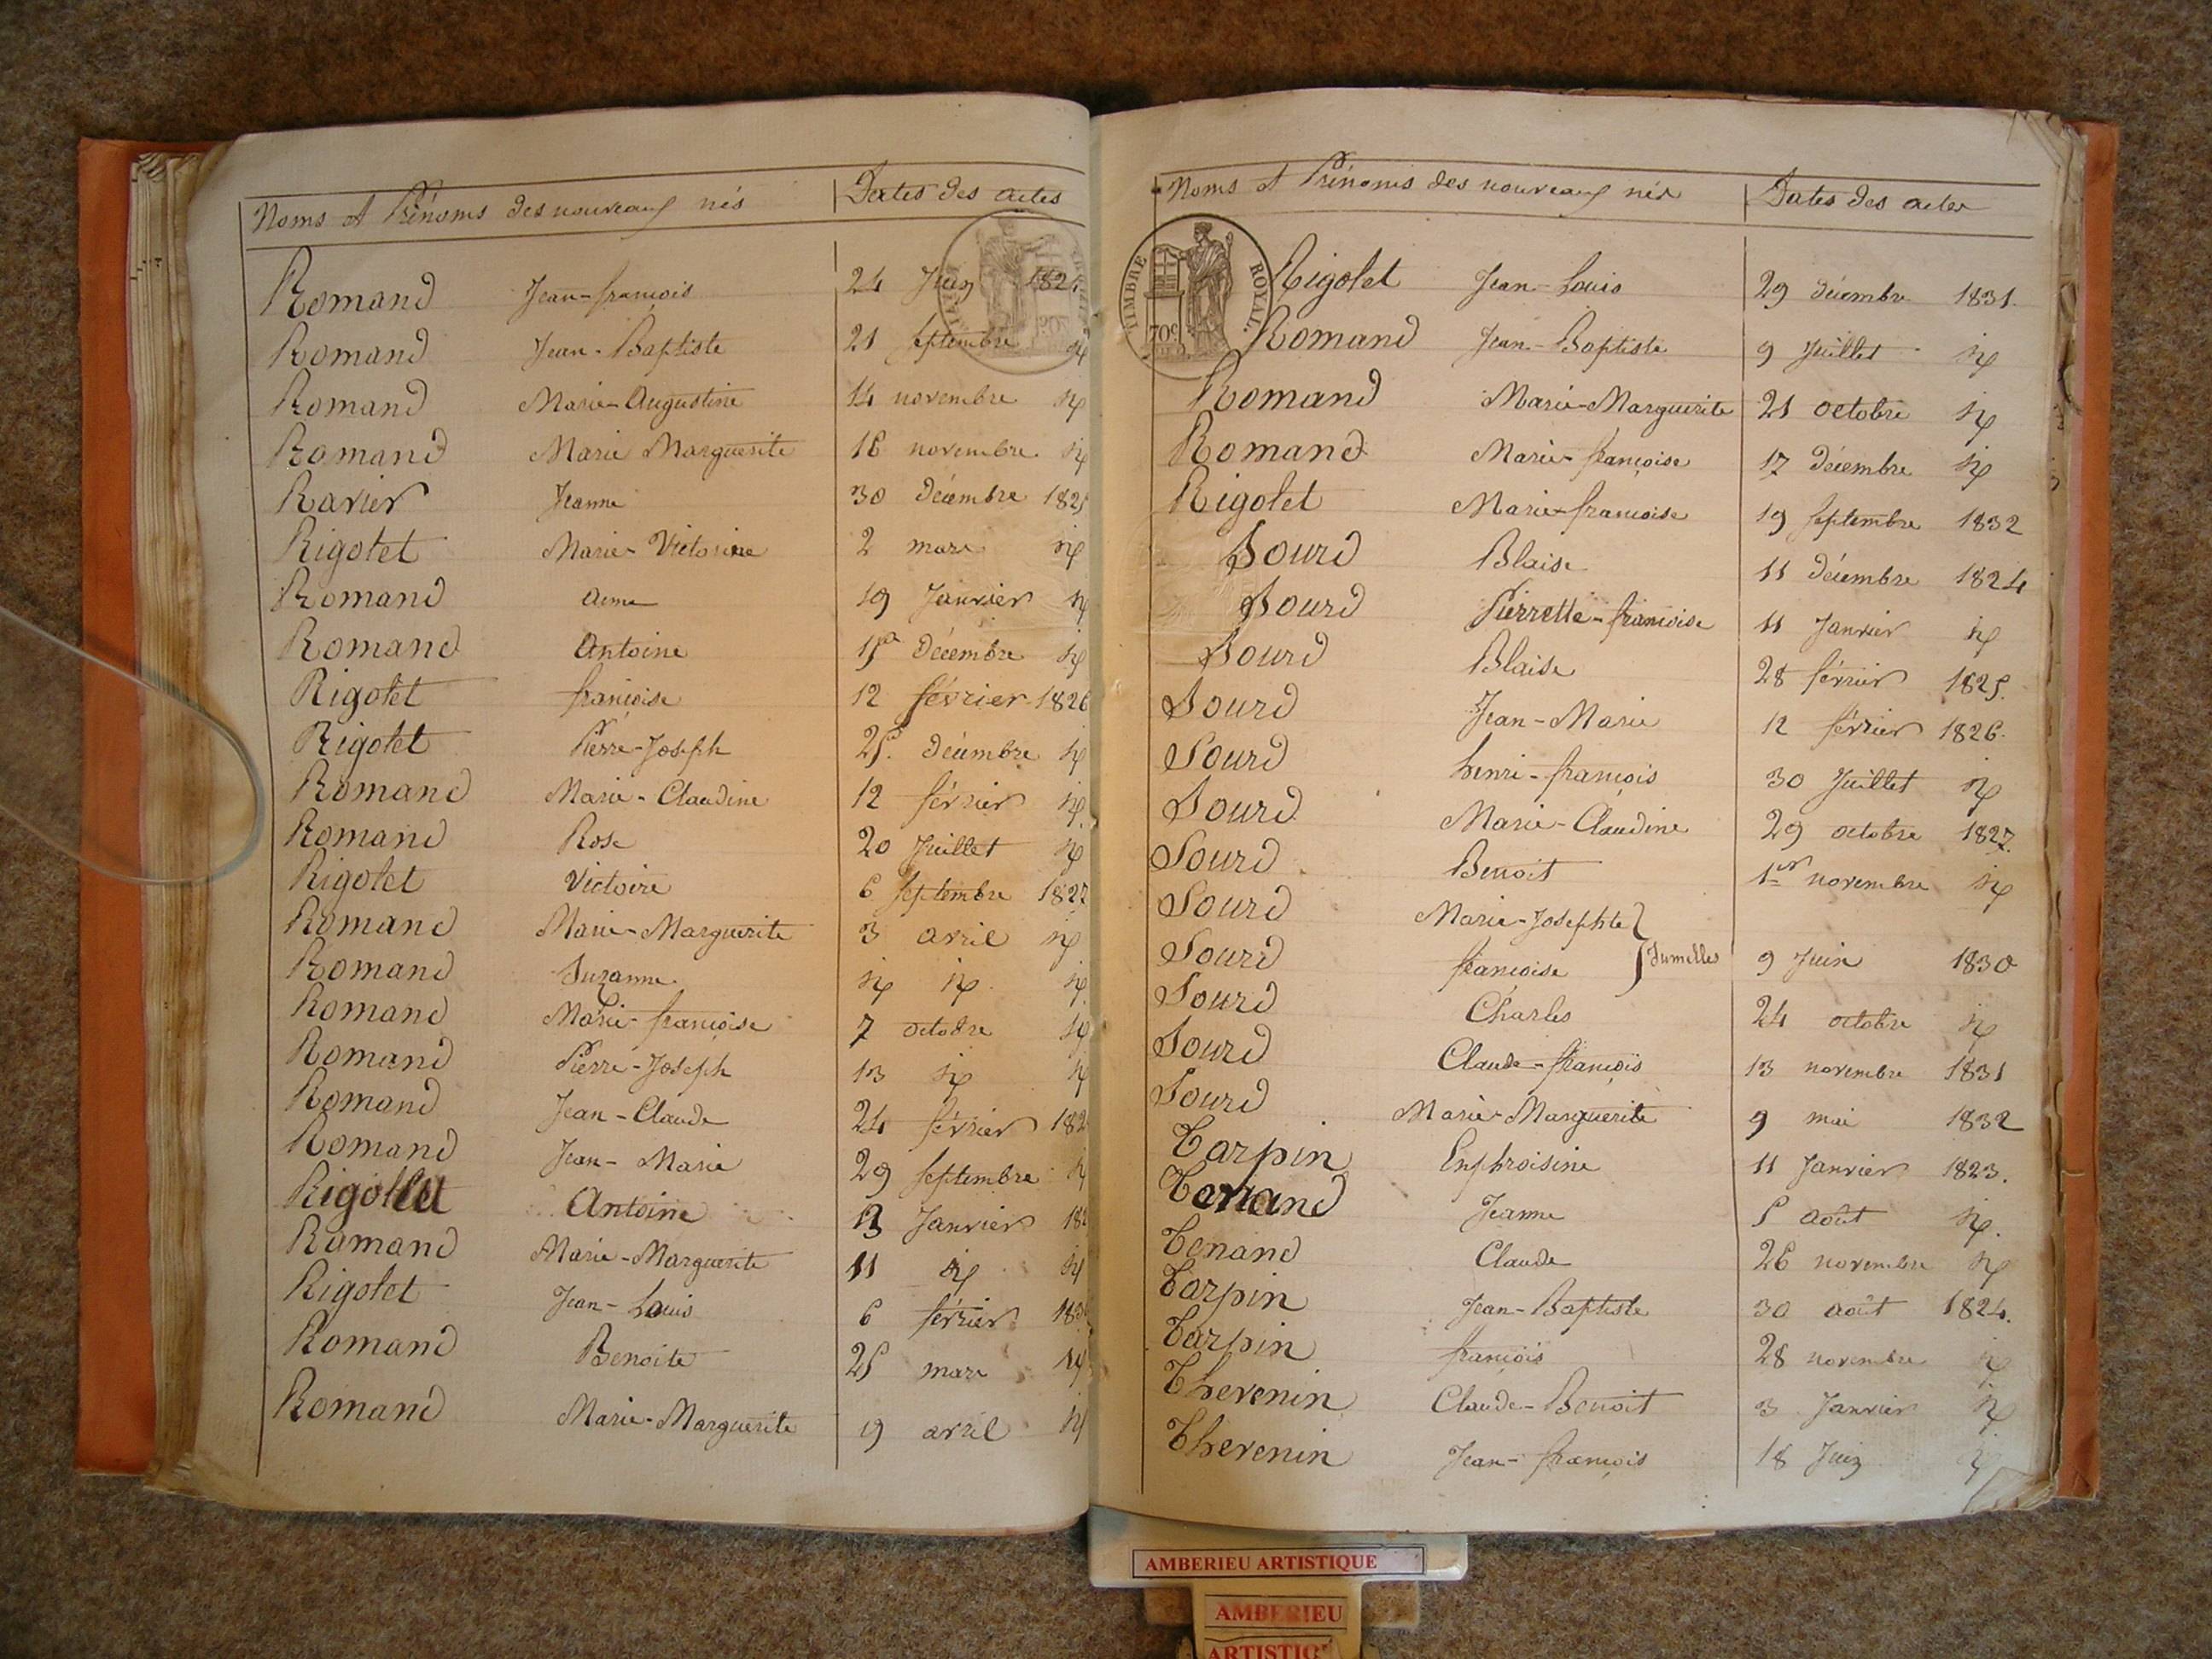 Noms et Prénoms des nouveaux nés Dates des actes
Romand Jean-françois 24 Juin 182
Romand Jean-Baptiste 21 septembre id
Romand Marie-Augustine 14 novembre id
Romand Marie Marguerite 16 novembre id
Ravier Jeanne 30 décembre 1825
Rigolet Marie-Victorine 2 mars id
Romand aimé 19 Janvier id
Romand Antoine 15 décembre id
Rigolet françoise 12 février 1826
Rigolet Pierre-Joseph 25 décembre id
Romand Marie-Claudine 12 février id
Romand Rose 20 Juillet id
Rigolet Victoire 6 septembre 1827
Romand Marie-Marguerite 3 avril id
Romand Suzanne id id id
Romand Marie-françoise 7 octobre id
Romand Pierre-Joseph 13 id id
Romand Jean-Claude 24 février 182
Romand Jean-Marie 29 septembre id
Rigollet Antoine 13 Janvier 182
Romand Marie-Marguerite 11 id id
Rigolet Jean-Louis 6 février 183
Romand Benoite 25 mars id
Romand Marie-Marguerite 19 avril id
Noms et Prénoms des nouveaux nés Dates des actes
TIMBRE ROYAL.
70c
Rigolet Jean-Louis 29 décembre 1831.
Romand Jean-Baptiste 9 Juillet id
Romand Marie-Marguerite 21 octobre id
Romand Marie-françoise 17 décembre id
Rigolet Marie-françoise 19 septembre 1832
Sourd Blaise 11 décembre 1824
Sourd Pierrette-françoise 11 Janvier id
Sourd Blaise 28 février 1825.
Sourd Jean-Marie 12 février 1826.
Sourd henri-françois 30 Juillet id
Sourd Marie-Claudine 29 octobre 1827.
Sourd Benoit 1er novembre id
Sourd Marie-Josephte
Sourd françoise } Jumelles 9 Juin 1830
Sourd Charles 24 octobre id
Sourd Claude-françois 13 novembre 1831
Sourd Marie-Marguerite 9 mai 1832
Tarpin Euphroisine 11 Janvier 1823.
Tenand Jeanne 5 août id.
Tenand Claude 26 novembre id
Tarpin Jean-Baptiste 30 août 1824.
Tarpin françois 28 novembre id
Thevenin Claude-Benoit 3 Janvier id
Thevenin Jean-françois 18 Juin
AMBERIEU ARTISTIQUE
AMBERIEU
ARTISTIQ